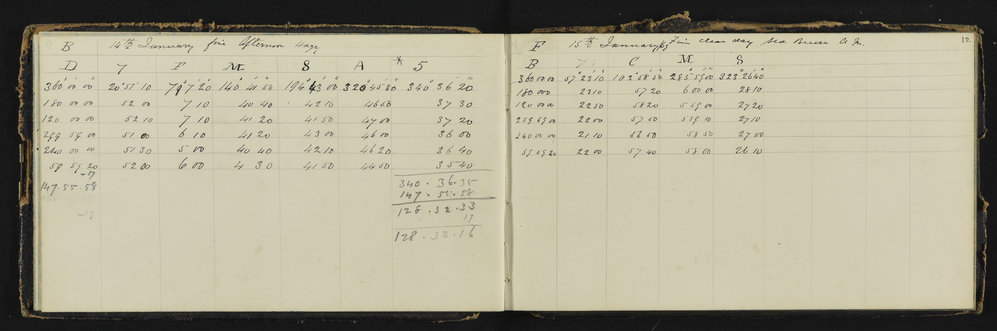 B 14th January fine Afternoon Hazy
D 7 F M 8 A * 5
360 00 00 20° 51' 10 79° 7' 20 140 40 50 194 43 00 320 45 80 340 36 20
180 00 00 52 00 7 10 40 40 42 10 46 50 37 30
120 00 00 52 10 7 10 41 20 41 50 47 00 37 20
299 59 00 51 00 6 10 41 20 43 00 46 00 36 00
240 00 00 51 30 5 00 40 40 42 10 46 20 36 40
59 59 20 52 00 6 00 4 30 41 50 44 50 35 40
-17
147.55.58
-17
340.36.35
147.55.58
128.32.33
17
128.32.16
F 15th January Fine clear day Sea Breeze 12
B 7 C M S
360 00 00 57 23 10 103 58 50 285 59 00 323 26 40
180 00 0 23 10 57 20 6 00 00 28 10
120 00 0 22 50 58 20 5 59 00 27 20
259 59 00 22 00 57 50 5 59 10 27 10
240 00 00 21 10 56 50 58 50 27 00
59 59 20 22 00 57 40 59 00 26 10